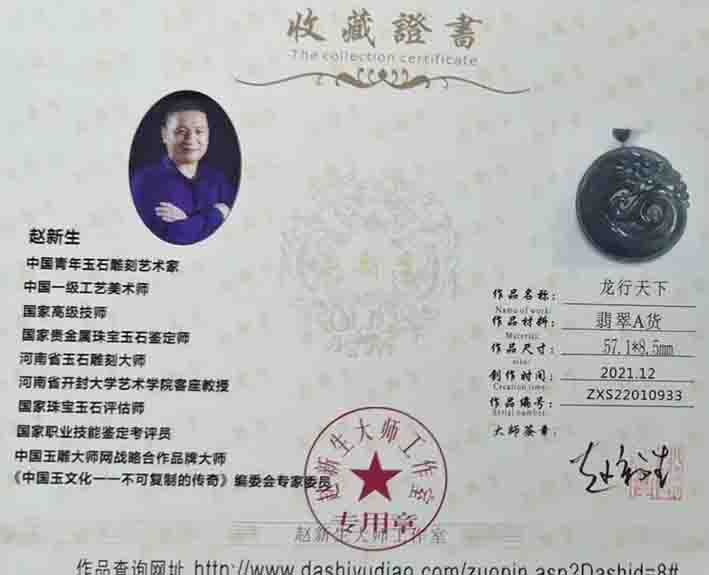 收藏證書
The collection certificate
赵新生
中国青年玉石雕刻艺术家
中国一级工艺美术师
国家高级技师
国家贵金属珠宝玉石鉴定师
河南省玉石雕刻大师
河南省开封大学艺术学院客座教授
国家珠宝玉石评估师
国家职业技能鉴定考评员
中国玉雕大师网战略合作品牌大师
《中国玉文化——不可复制的传奇》编委会专家委员
作品名称： 龙行天下
Name of work:
作品材料： 翡翠A货
Material:
作品尺寸： 57.1*8.5mm
size:
创作时间： 2021.12
Creation time:
作品编号： ZXS22010933
Serial number:
大师签章：
赵新生
赵新生大师工作室
专用章
赵新生大师工作室
作品查询网址 http://www.dashiyudiao.com/zuopin.asp?Dashid=8#